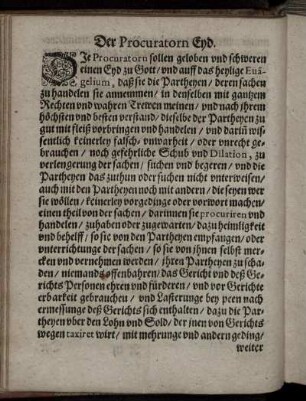 Der Procuratorn Eyd.
DJe Procuratorn sollen geloben vnd schweren
einen Eyd zu Gott / vnd auff das heylige Euã-
gelium, daß sie die Partheyen / deren sachen
zu handelen sie annemmen / in denselben mit gantzem
Rechten vnd wahren Trewen meinen / vnd nach jhrem
höchsten vnd besten verstand / dieselbe der Partheyen zu
gut mit fleiß vorbringen vnd handelen / vnd dariñ wis-
sentlich keinerley falsch / vnwarheit / oder vnrecht ge-
brauchen / noch gefehrliche Schub vnd Dilation, zu
verlengerung der sachen / suchen vnd begeren / vnd die
Partheyen das zuthun oder suchen nicht vnterweisen /
auch mit den Partheyen noch mit andern / die seyen wer
sie wöllen / keinerley vorgedinge oder vorwort machen /
einen theil von der sachen / darinnen sie procuriren vnd
handelen / zuhaben oder zugewarten / dazu heimligkeit
vnd behelff / so sie von den Partheyen empfangen / oder
vnterrichtunge der sachen / so sie von jhnen selbst mer-
cken vnd vernehmen werden / jhren Partheyen zu scha-
den / niemands offenbahren / das Gericht vnd deß Ge-
richts Personen ehren vnd fürderen / vnd vor Gerichte
erbarkeit gebrauchen / vnd Lasterunge bey peen nach
ermessunge deß Gerichts sich enthalten / dazu die Par-
theyen vber den Lohn vnd Sold / der jnen von Gerichts
wegen taxiret wirt / mit mehrunge vnd andern geding /
weiter